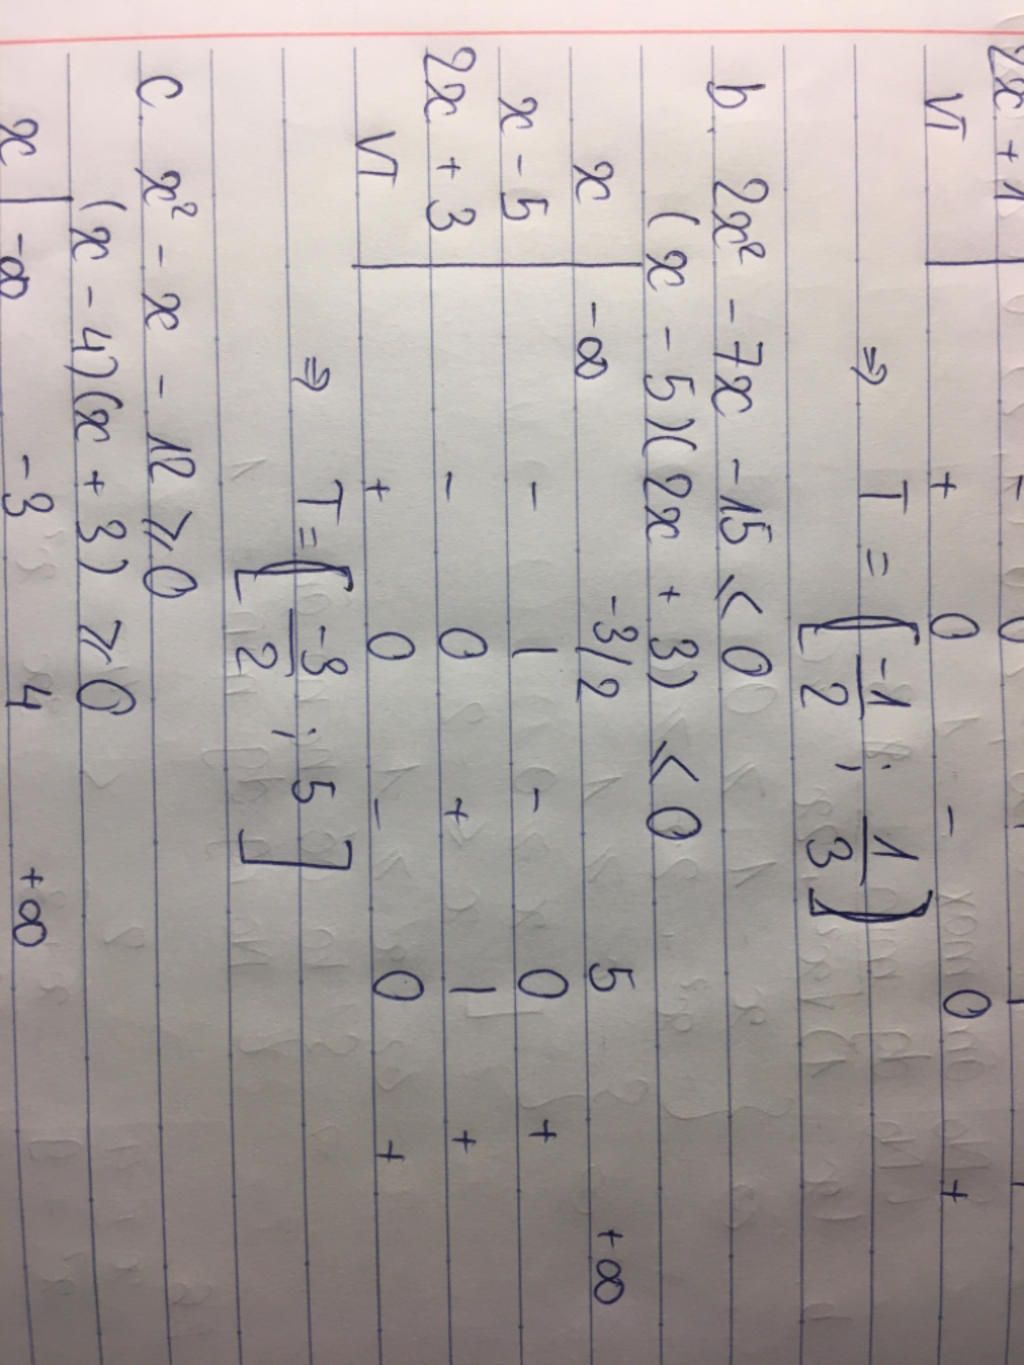 2x + 1 - 0
VT + 0 - 0 +
⇒ T = [-1/2 ; 1/3]
b. 2x² - 7x - 15 < 0
(x - 5)(2x + 3) < 0
x -∞ -3/2 5 +∞
x - 5 - | - 0 +
2x + 3 - 0 + | +
VT + 0 - 0 +
⇒ T = [-3/2 ; 5]
c. x² - x - 12 ⩾ 0
(x - 4)(x + 3) ⩾ 0
x -∞ -3 4 +∞